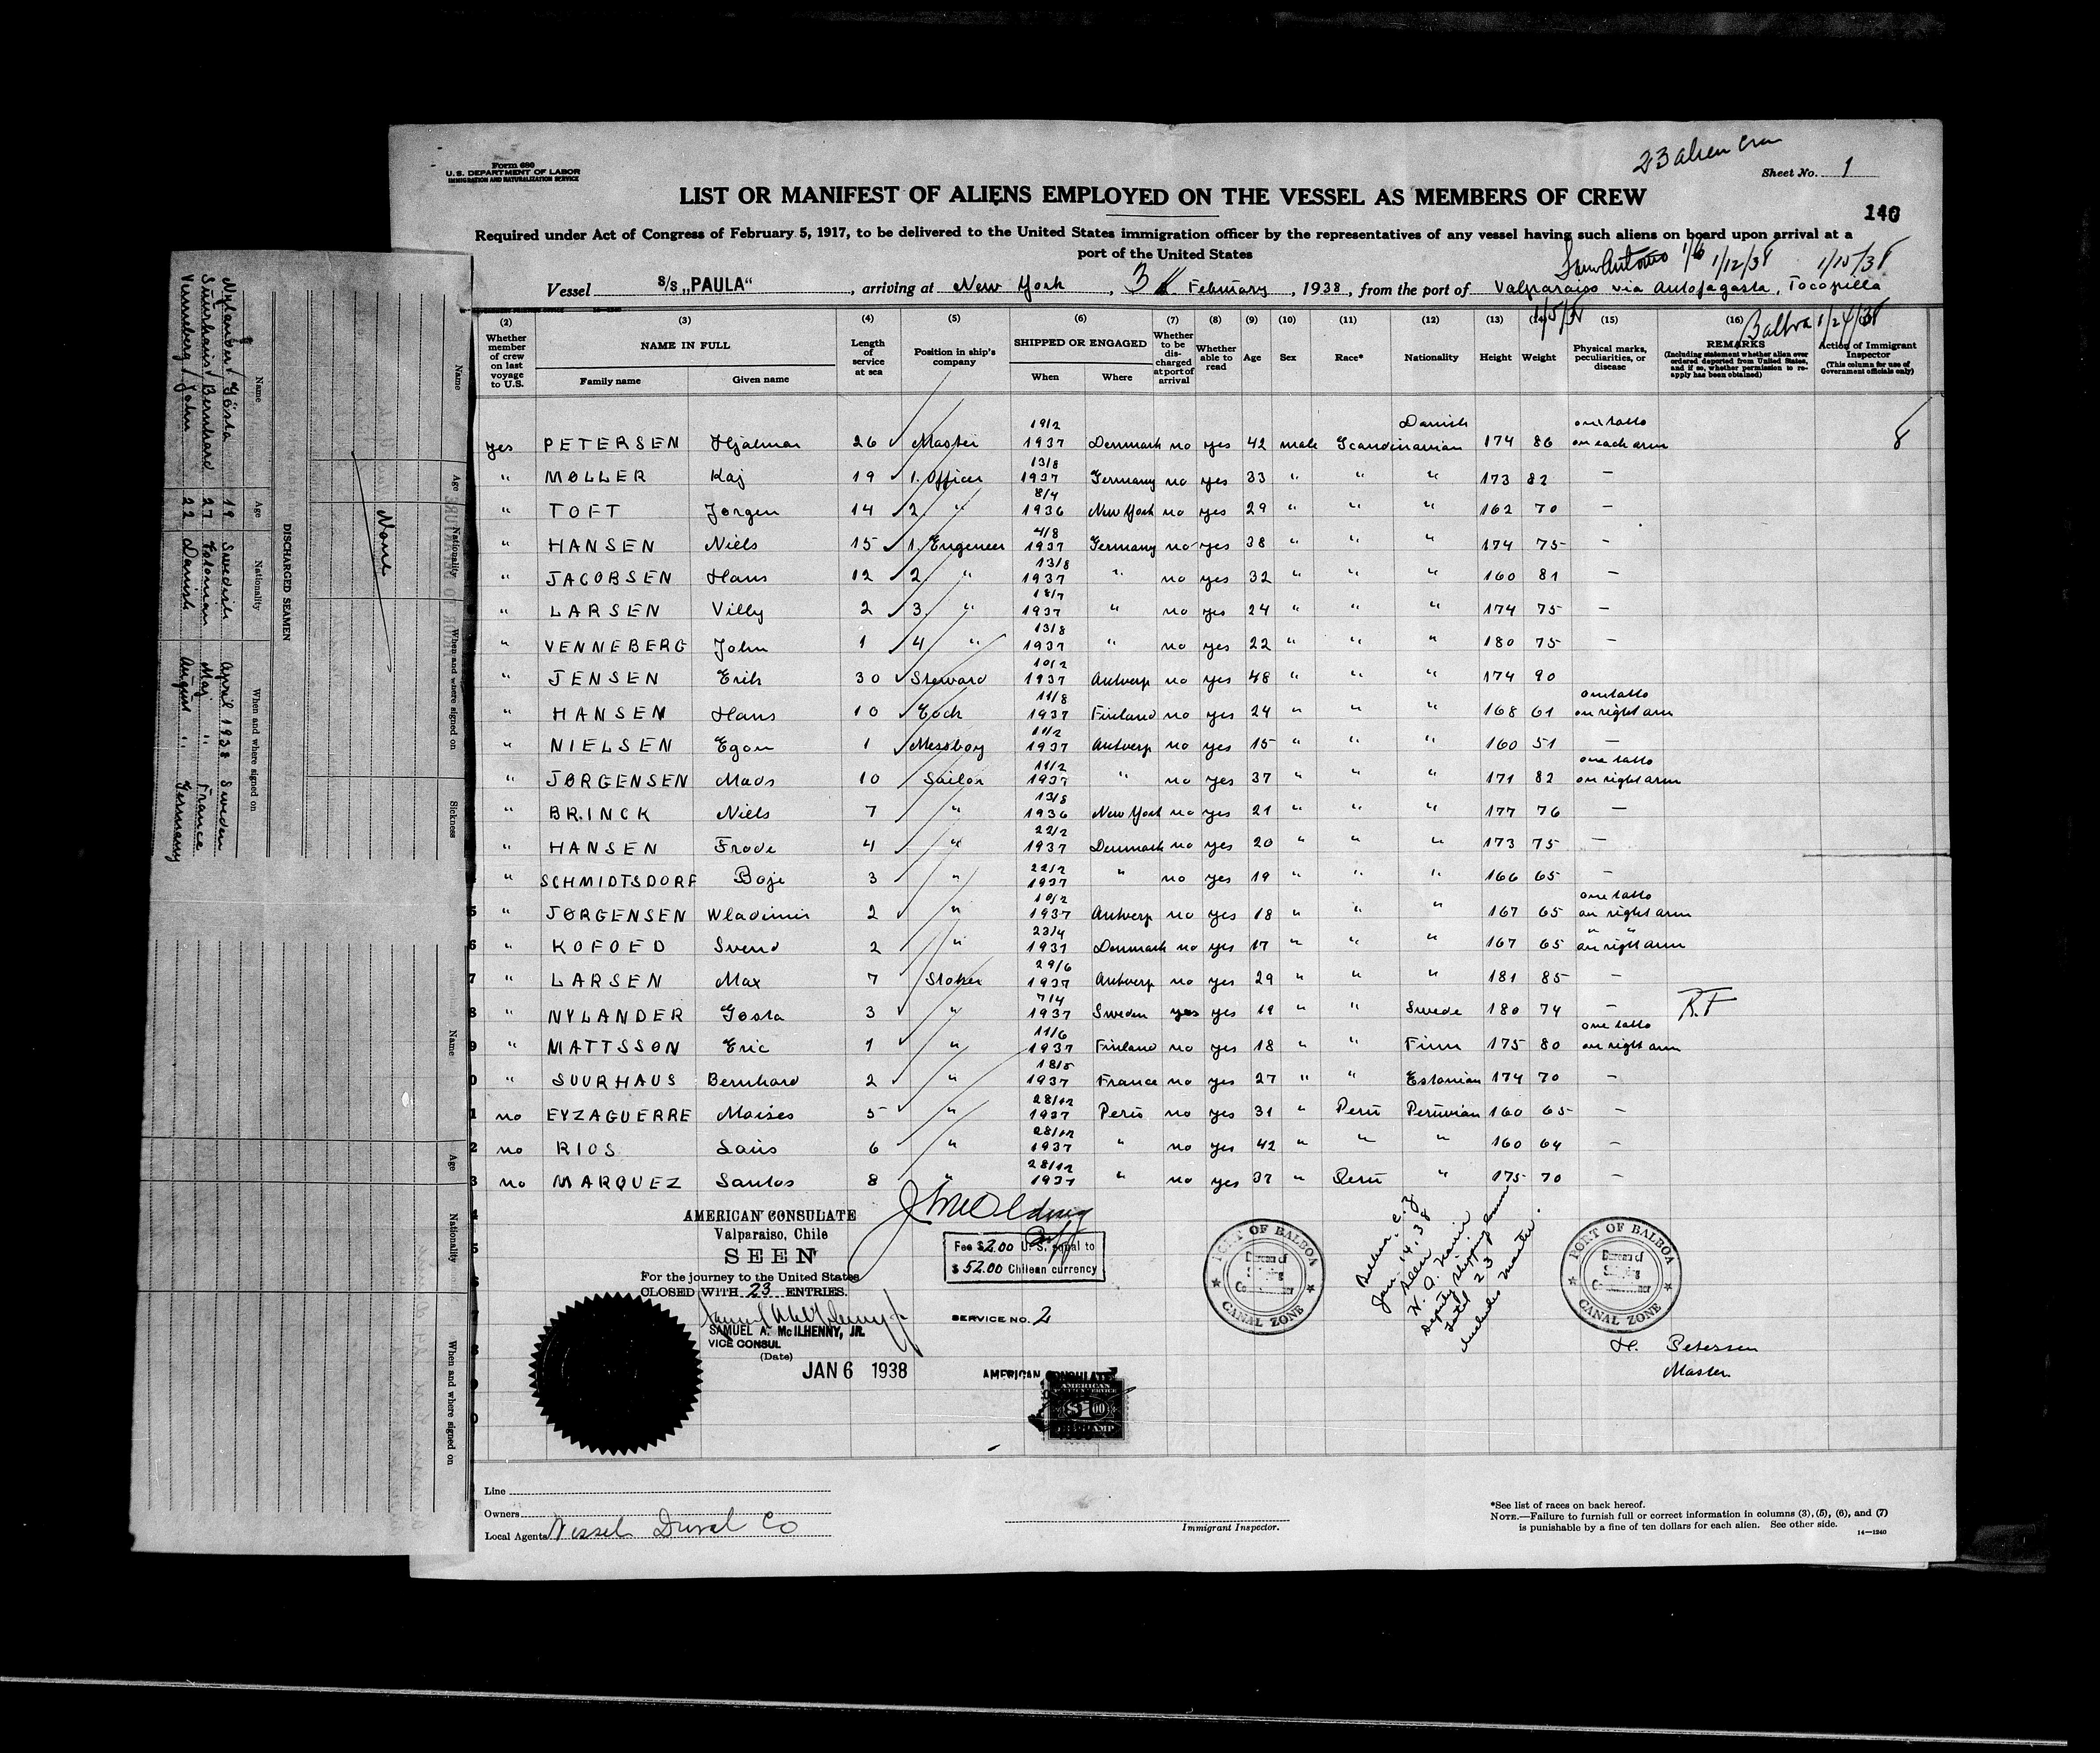 23 alien crew
Form 680
U. S. DEPARTMENT OF LABOR
IMMIGRATION AND NATURALIZATION SERVICE
Sheet No. 1
LIST OR MANIFEST OF ALIENS EMPLOYED ON THE VESSEL AS MEMBERS OF CREW
140
Required under Act of Congress of February 5, 1917, to be delivered to the United States immigration officer by the representatives of any vessel having such aliens on board upon arrival at a
port of the United States
San Antonio 1/6 1/12/38 1/15/38
Vessel S/S „PAULA“, arriving at New York, 3 February, 1938, from the port of Valparaiso via Antofagasta, Tocopilla
1/5/38 Balboa 1/24/38
(2) (3) (4) (5) (6) (7) (8) (9) (10) (11) (12) (13) (15) (16)
Whether member of crew on last voyage to U.S. NAME IN FULL Family name Given name Length of service at sea Position in ship's company SHIPPED OR ENGAGED When Where Whether to be discharged at port of arrival Whether able to read Age Sex Race* Nationality Height Weight Physical marks, peculiarities, or disease REMARKS (Including statement whether alien ever ordered deported from United States, and if so, whether permission to reapply has been obtained) Action of Immigrant Inspector (This column for use of Government officials only)
yes PETERSEN Hjalmar 26 Master 19/2 1937 Denmark no yes 42 male Scandinavian Danish 174 86 one tatto on each arm
" MØLLER Kaj 19 1. Officer 13/8 1937 Germany no yes 33 " " " 173 82 –
" TOFT Jørgen 14 2 " 8/4 1936 New York no yes 29 " " " 162 70 –
" HANSEN Niels 15 1. Engeneer 4/8 1937 Germany no yes 38 " " " 174 75 –
" JACOBSEN Hans 12 2. " 13/8 1937 " no yes 32 " " " 160 81 –
" LARSEN Villy 2 3. " 18/7 1937 " no yes 24 " " " 174 75 –
" VENNEBERG John 1 4 " 13/8 1937 " no yes 22 " " " 180 75 –
" JENSEN Erik 30 Steward 10/2 1937 Antwerp no yes 48 " " " 174 90
" HANSEN Hans 10 Cock 11/8 1937 Finland no yes 24 " " " 168 61 one tatto on right arm
" NIELSEN Egon 1 Messboy 11/2 1937 Antwerp no yes 15 " " " 160 51 –
" JØRGENSEN Mads 10 Sailor 11/2 1937 " no yes 37 " " " 171 82 one tatto on right arm
" BRINCK Niels 7 " 13/8 1936 New York no yes 21 " " " 177 76 –
" HANSEN Frode 4 " 22/2 1937 Denmark no yes 20 " " " 173 75 –
" SCHMIDTSDORF Boje 3 " 22/2 1937 " no yes 19 " " " 166 65 –
5 " JØRGENSEN Wladimir 2 " 10/2 1937 Antwerp no yes 18 " " " 167 65 one tatto on right arm
6 " KOFOED Svend 2 " 23/4 1937 Denmark no yes 17 " " " 167 65 " " on right arm
7 " LARSEN Max 7 Stoker 29/6 1937 Antwerp no yes 29 " " " 181 85 –
8 " NYLANDER Gösta 3 " 7/4 1937 Sweden yes yes 19 " " Swede 180 74 – R.F
9 " MATTSSON Eric 1 " 11/6 1937 Finland no yes 18 " " Finn 175 80 one tatto on right arm
0 " SUURHAUS Bernhard 2 " 18/5 1937 France no yes 27 " " Estonian 174 70 –
1 no EYZAGUERRE Moises 5 " 28/12 1937 Perü no yes 31 " Perü Perüvian 160 65 –
2 no RIOS Laüs 6 " 28/12 1937 " no yes 42 " " 160 64 –
3 no MARQUEZ Santos 8 " 28/12 1937 " no yes 37 " Perü " 175 70 –
AMERICAN CONSULATE
Valparaiso, Chile
SEEN
For the journey to the United States
CLOSED WITH 23 ENTRIES.
SAMUEL A. McILHENNY, JR.
VICE CONSUL
(Date)
JAN 6 1938
Fee $2.00 U. S. equal to
$ 52.00 Chilean currency
SERVICE NO. 2
AMERICAN CONSULATE
PORT OF BALBOA
Bureau of
CANAL ZONE
Balboa, C. Z.
Jan. 14, 38
Seen
Deputy Shipping Comm
Total 23
includes master.
PORT OF BALBOA
Bureau of
CANAL ZONE
H. Petersen
Master
Line
Owners
Local Agents Wessel Duval Co
Immigrant Inspector.
*See list of races on back hereof.
NOTE.—Failure to furnish full or correct information in columns (3), (5), (6), and (7)
is punishable by a fine of ten dollars for each alien. See other side.
14—1240
Name Age Nationality When and where signed on Sickness
None
DISCHARGED SEAMEN
Name Age Nationality When and where signed on
Nylander, Gösta 19 Swedish April 1938 Sweden
Suurhaus, Bernhard 27 Estonian Maj " France
Venneberg, John 22 Danish August " Germany
Name Age Nationality When and where signed on